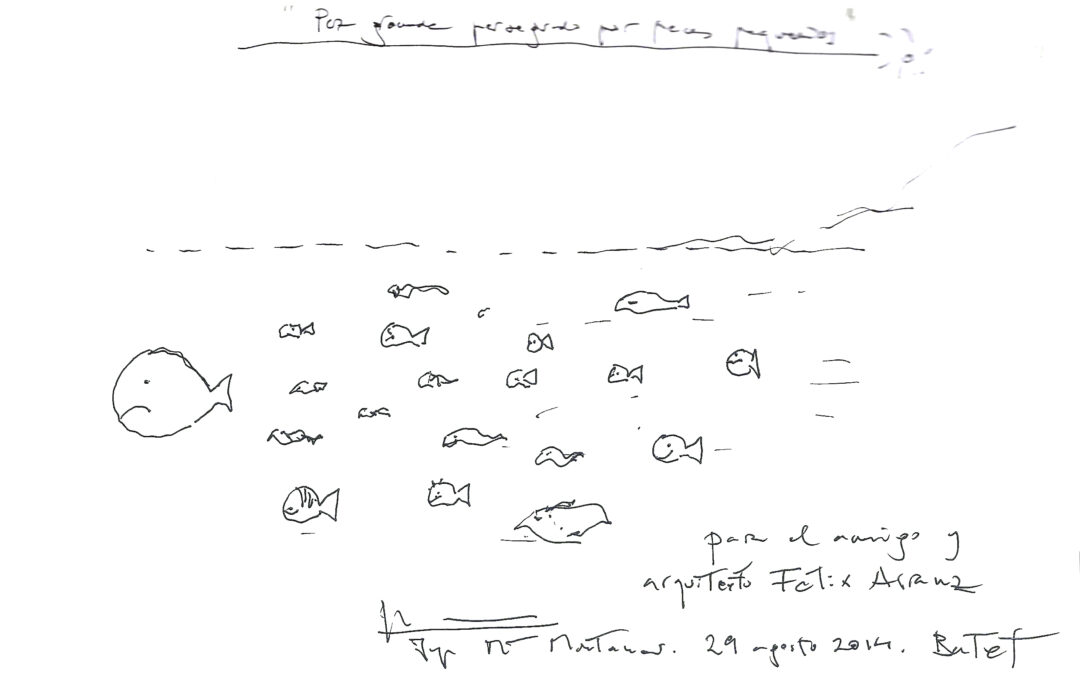 "Pez grande perseguido por peces pequeños"
para el amigo y
arquitecto Felix Arranz
Josep Mª Montaner. 29 agosto 2014. Batet